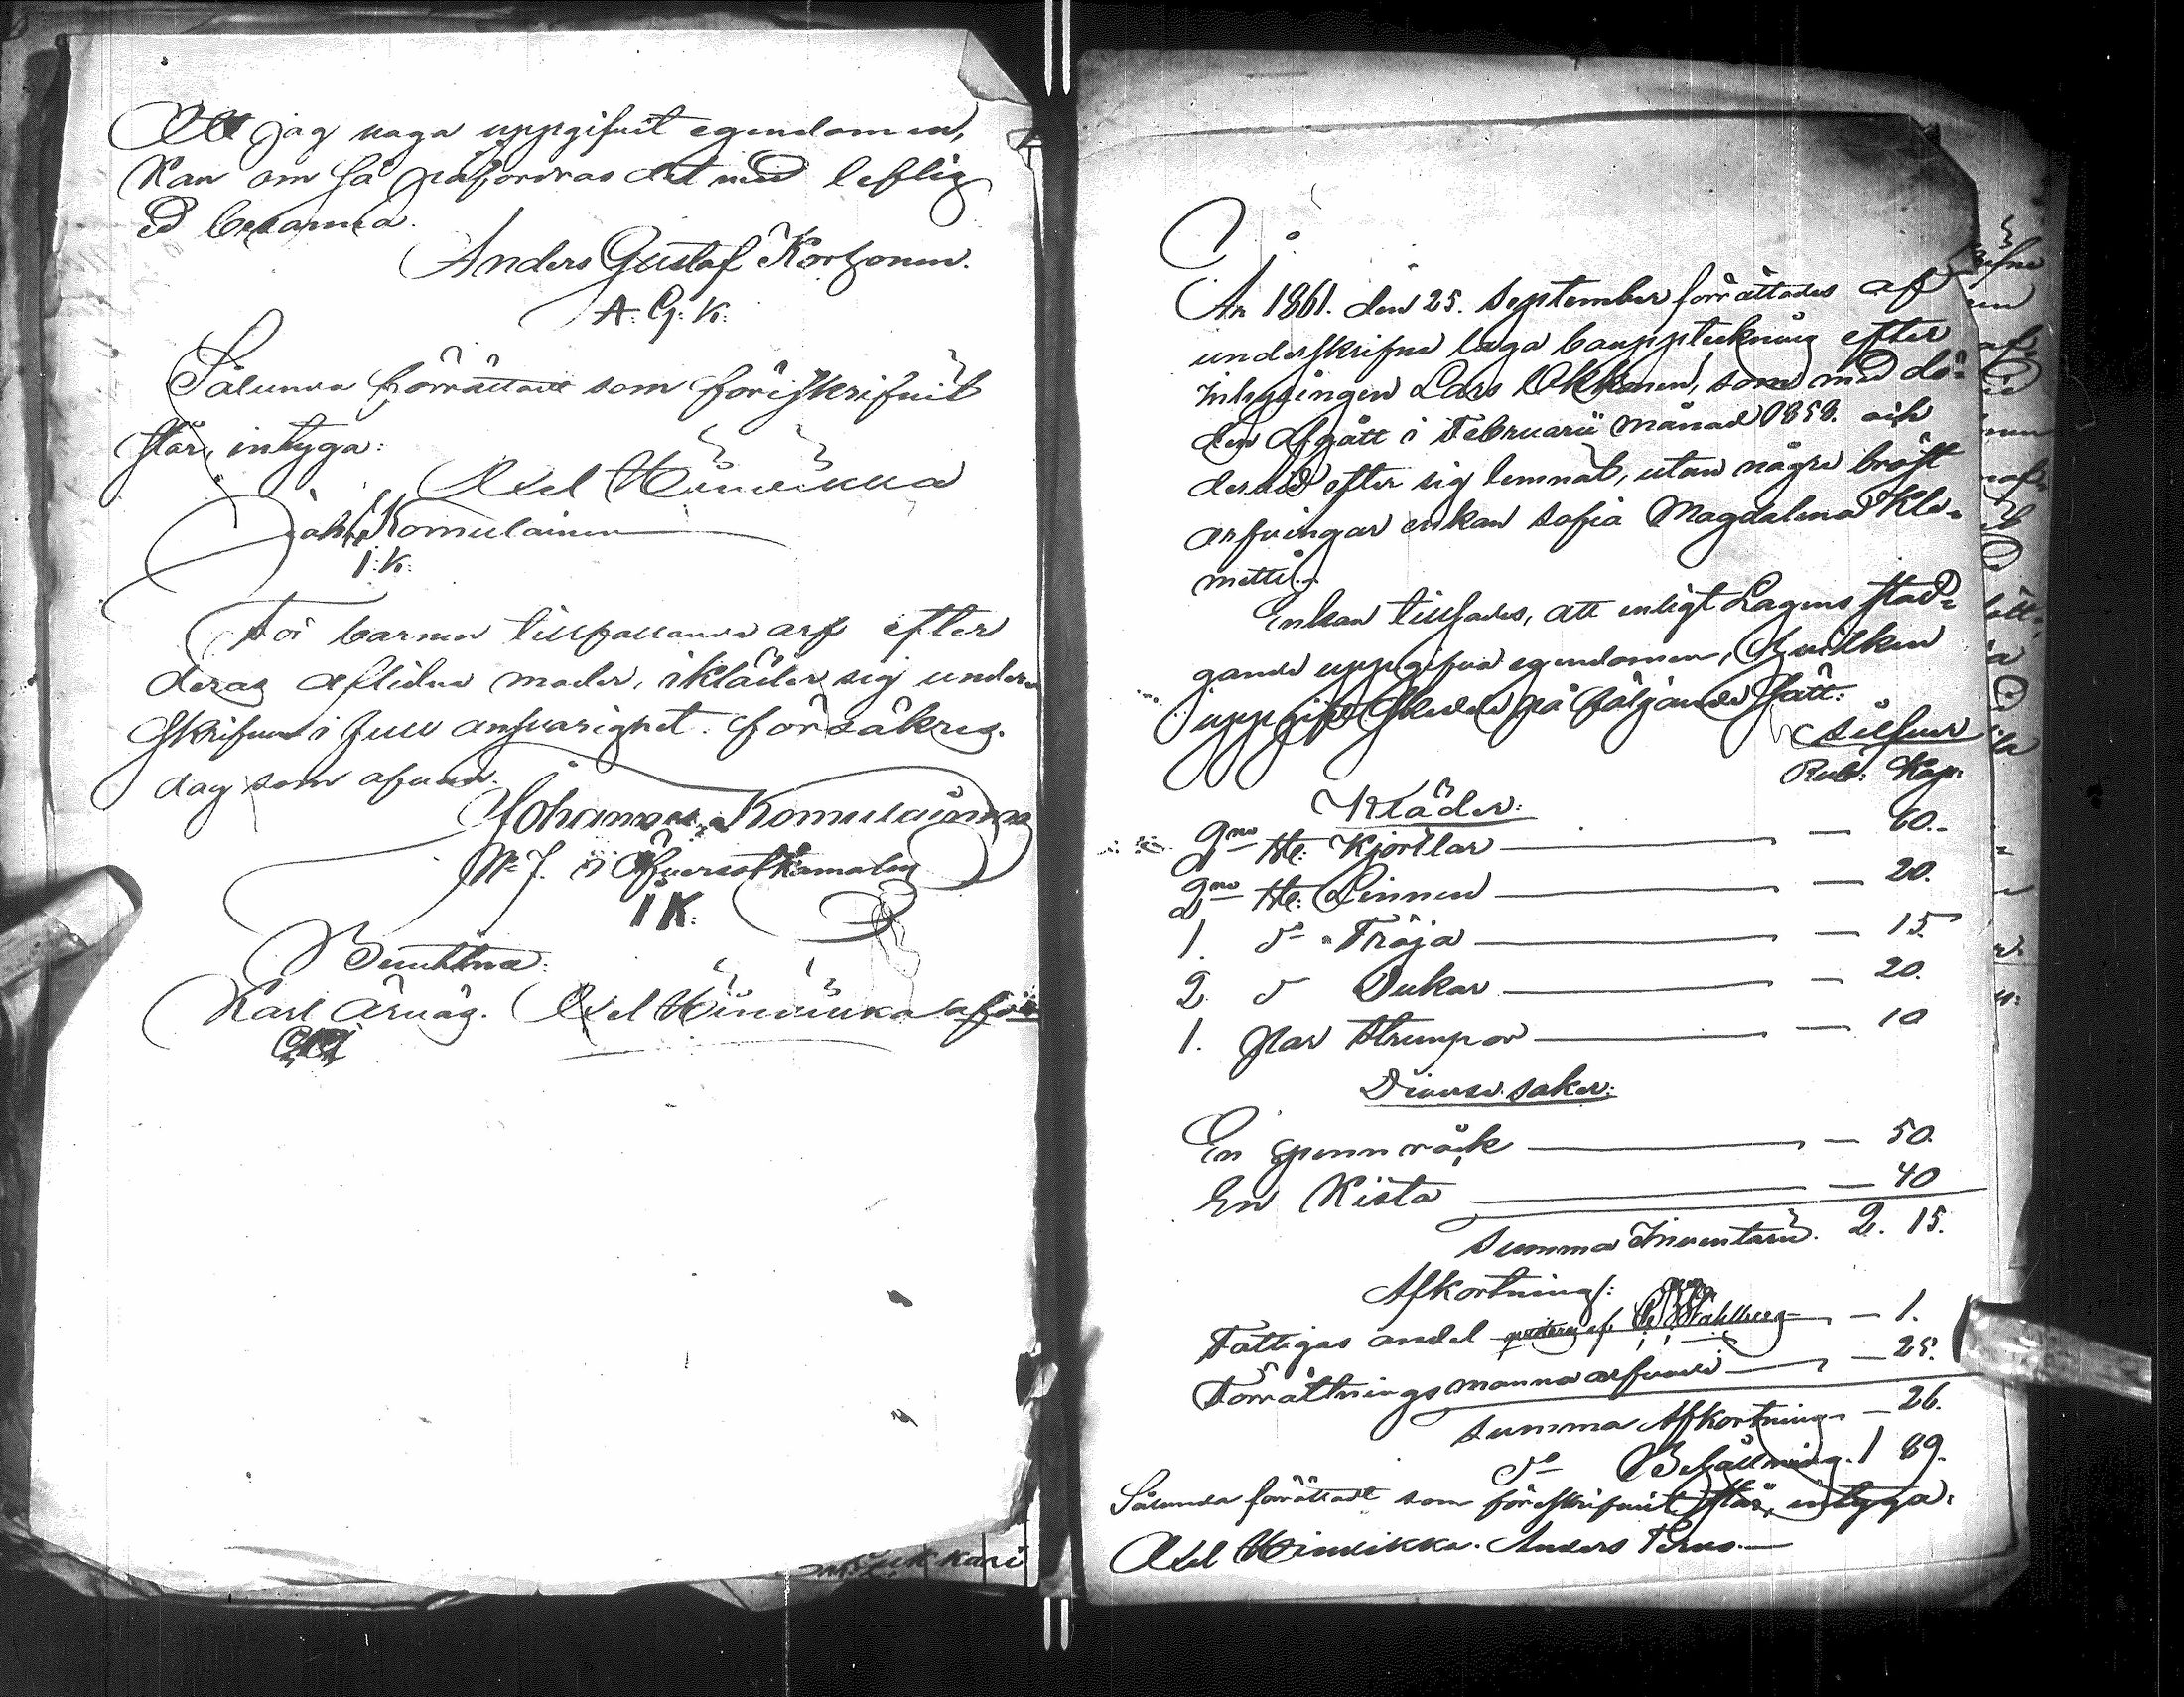 Att jag noga uppgifvit egendomen,
kan om så påfordras det med liflig
Ed besanna.
Anders Gustaf Korhonen.
A. G. K.
Sålunda förrättadt som föreskrifvit
står, intyga:
Axel Hinvikka
Joh: Komulainen
I. K.
För barnen tillfallande arf efter
deras aflidna moder, ikläder sig under
skrifven i full ansvarighet. försäkras.
dag som ofvan.
Johannes Komulainen
I K.
Bevittna:
Karl Axel Hinvikka
År 1861. den 25. September förrättades af
underskrifne laga bouppteckning efter
Inhysingen Lars Okkonen, som med dö-
den afgått i Februarii månad 1858. och
dervid efter sig lemnat, utan någre bröst
arfvingar enkan Sofia Magdalena Kle-
metti.
Enkan tillsades, att enligt Lagens stad-
gande uppgifva egendomen, hvilken
uppgift skedde på följande sätt:
Silfver
Rub: Kop:
Kläder:
2ne st: Kjortlar — 60.
2ne st: Linnen — 20.
1. do Tröja — 15
2 do Dukar — 20.
1. par Strumpor — 10
Diverse saker:
En spennråck — 50.
En Kista — 40
Summa Inventarii. 2. 15.
Afkortning:
Fattigas andel — 1.
Förrättningsmanna arfvode — 25.
Summa Afkortning — 26.
do Behållning. 1 89.
Sålunda förrättadt som föreskrifvit står, intyga:
Axel Hinvikka. Anders